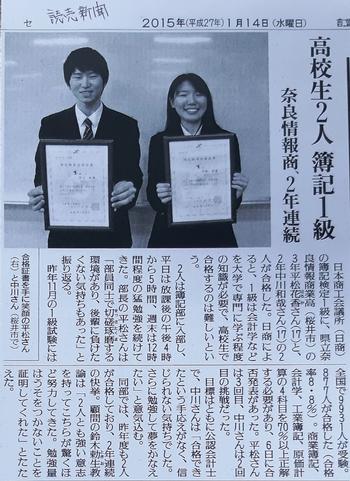 読売新聞
2015年(平成27年)1月14日(水曜日)
高校生2人 簿記1級
奈良情報商、2年連続
合格証書を手に笑顔の平松さん
(右)と中川さん(桜井市で)
日本商工会議所(日商)
の簿記検定1級に、県立奈
良情報商業高(桜井市)の
3年平松花香さん(17)と、
2年中川和哉さん(17)の2
人が合格した。日商によ
ると、1級は会計学など
を大学で専門に学ぶ程度
の知識が必要で、高校生で
合格するのは難しいとい
う。
2人は簿記部に入部し、
平日は放課後の午後4時
から5時間、週末は7時
間程度の猛勉強を続けて
きた。部長の平松さんは
「部員同士で切磋琢磨する
環境があり、後輩に負けた
くない気持ちもあった」と
振り返る。
昨年11月の1級試験には
全国で9931人が受験。
877人が合格した(合格
率8・8%)。商業簿記、
会計学、工業簿記、原価計
算の4科目を70%以上正解
する必要があり、6日に合
否発表があった。平松さん
は3回目、中川さんは2回
目の挑戦だった。
目標はともに公認会計士
で、中川さんは「合格でき
たという手応えがなく、信
じられない気持ちでした。
さらに勉強して夢をかなえ
たい」と意気込む。
同部では、昨年度も2人
が合格しており、2年連続
の快挙。顧問の鈴木勅生教
諭は「2人とも強い意志
を持ってこちらが驚くほ
ど努力してきた。勉強量
はうそをつかないことを
証明してくれた」とたた
えた。